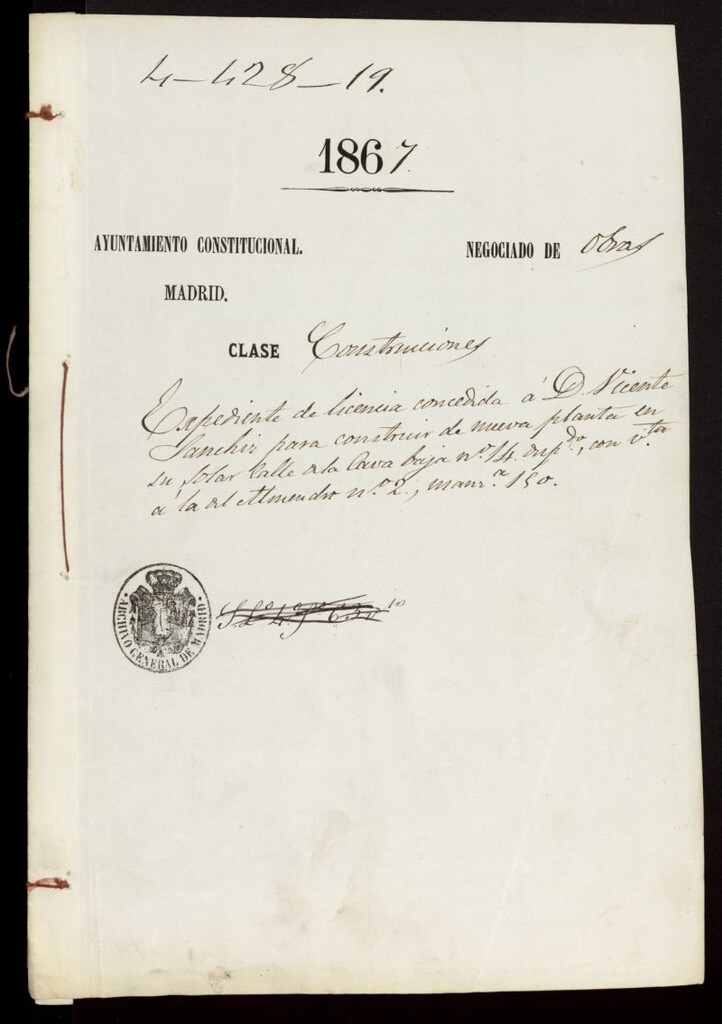 4-428-19.
1867.
AYUNTAMIENTO CONSTITUCIONAL.
NEGOCIADO DE Obras
MADRID.
CLASE Construciones
Expediente de licencia concedida á D. Vicente
Sanchiz para construir de nueva planta en
su solar Calle de la Cava baja nº 14 dupdo, con vta
á la del Almendro nº 2, manza 150.
ARCHIVO GENERAL DE MADRID